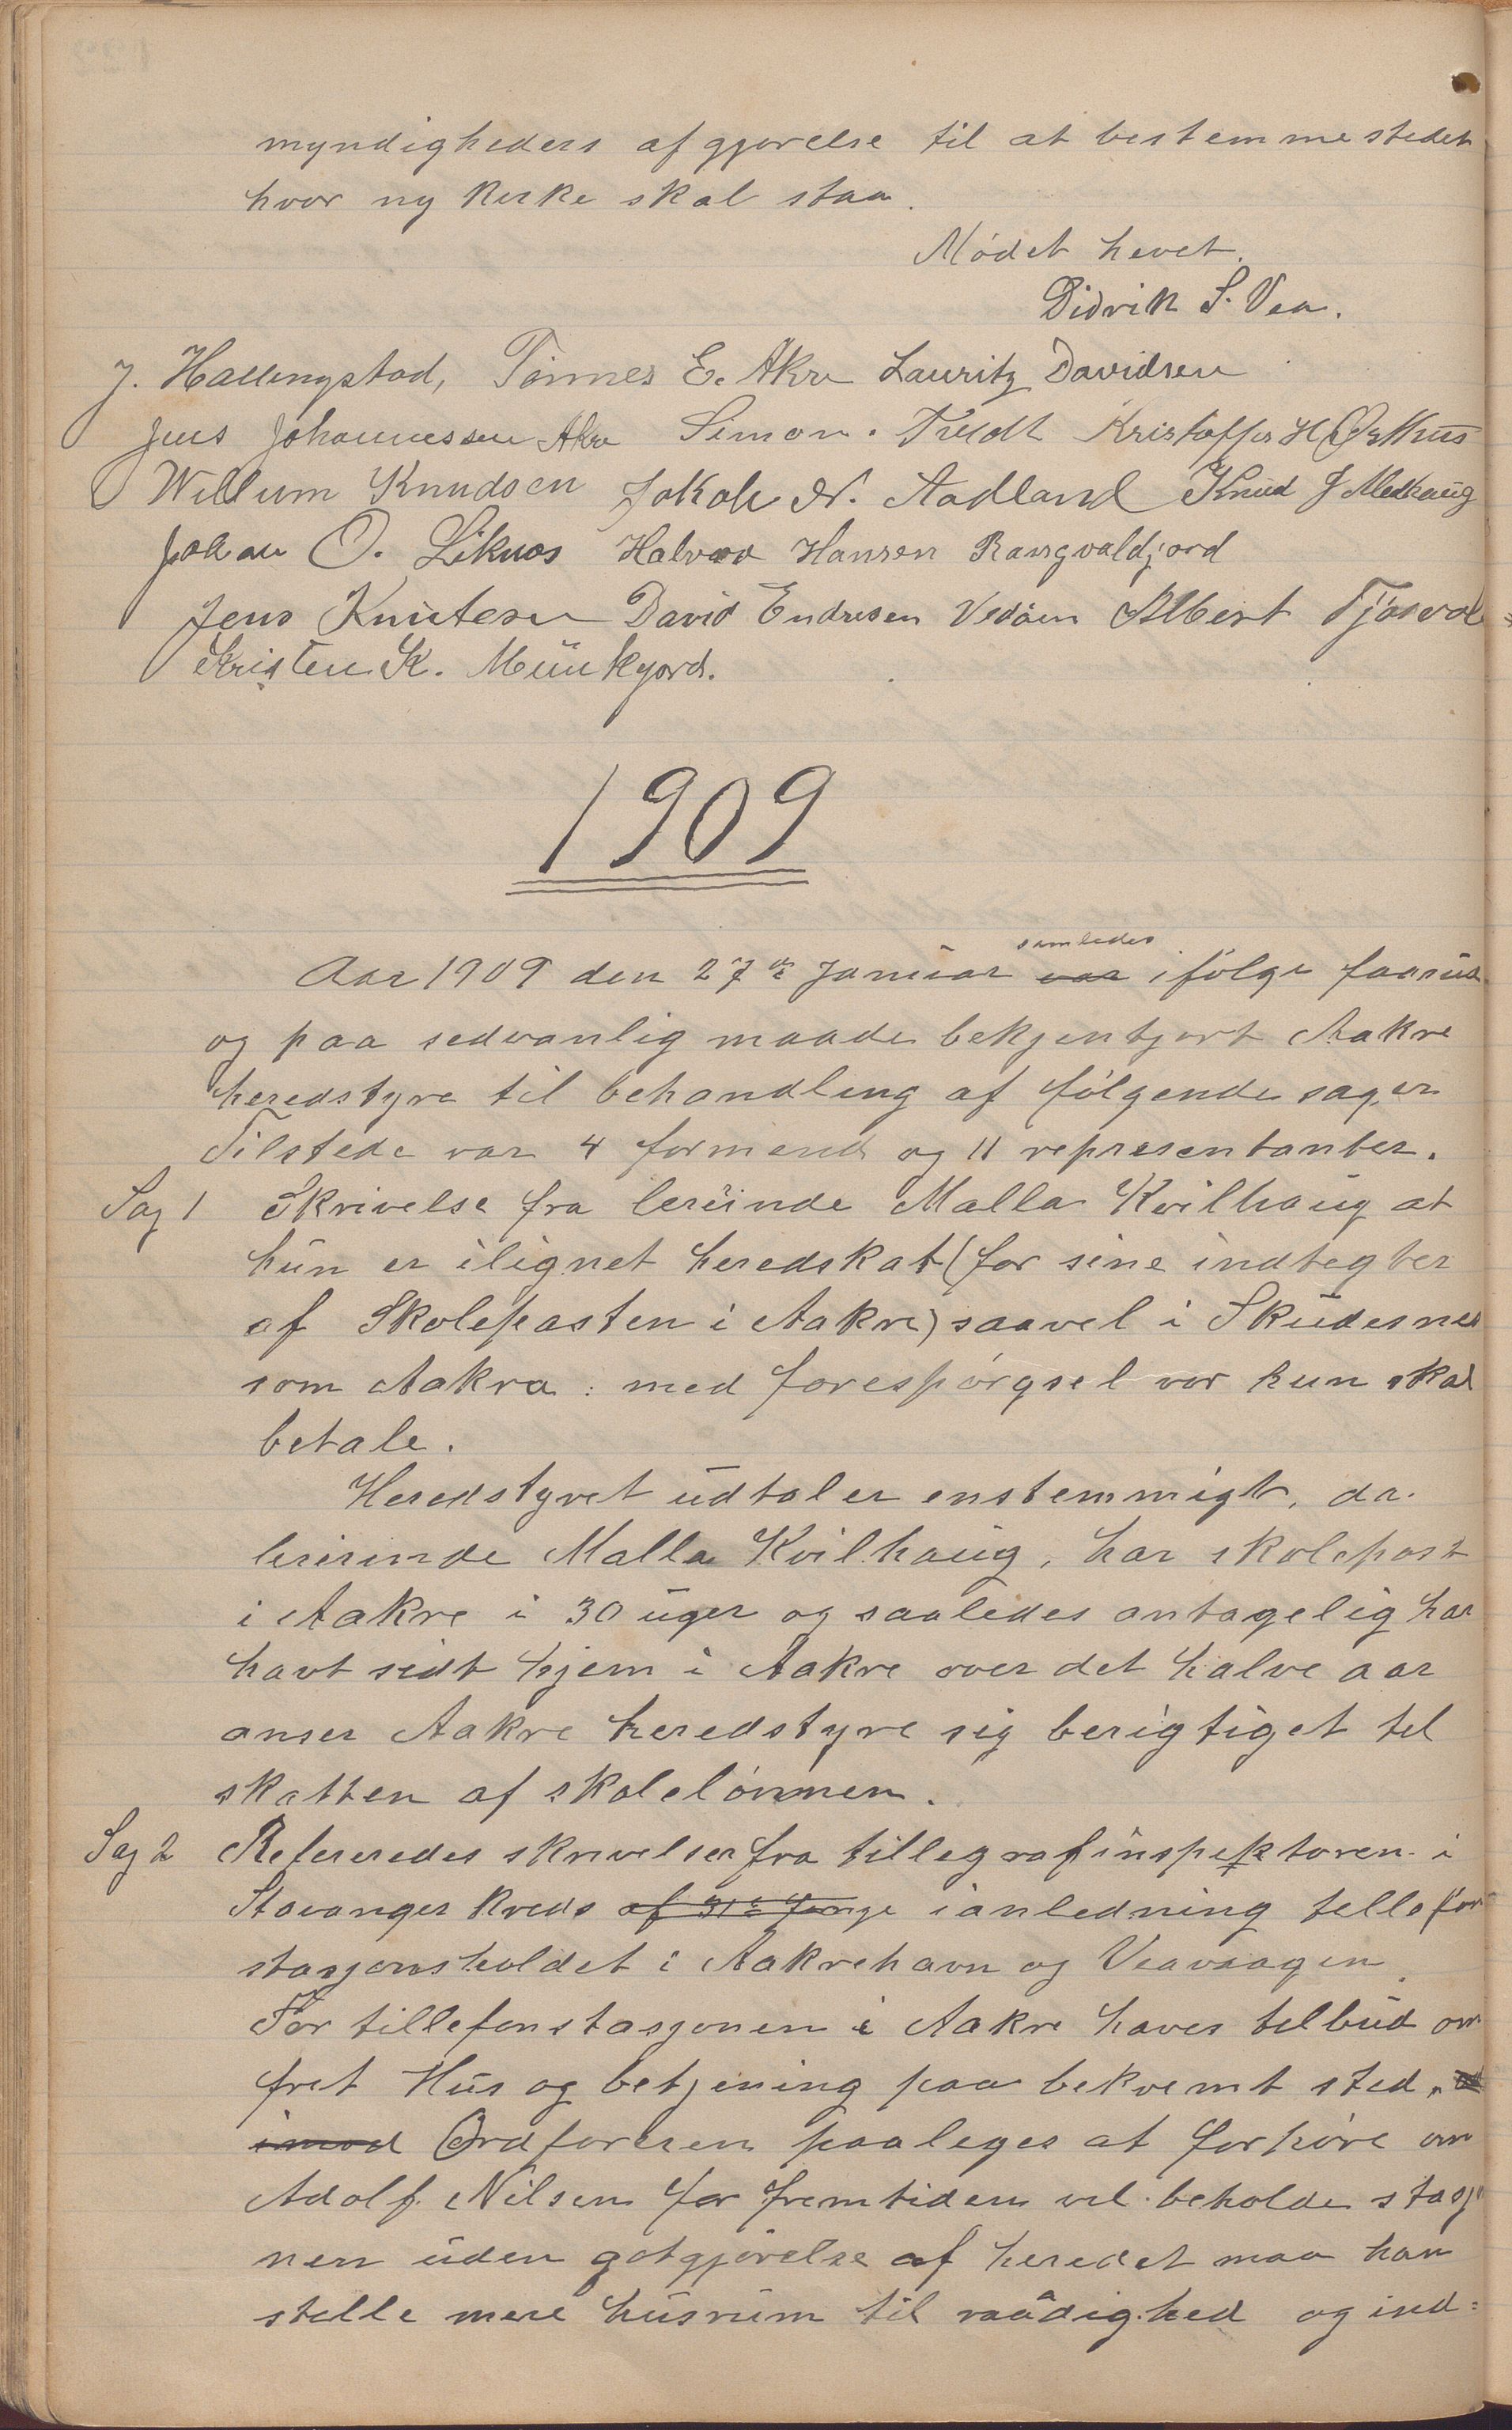 myndigheders afgjørelse til at bestemme stedet
hvor ny Kirke skal staa.
Mødet hevet.
Didrik S. Vea.
J. Hallingstad, Tønnes E. Akre Lauritz Davidsen
Jens Johannessen Akre Simon Kristoffer H Østhus
Willum Knudsen Jakob N. Aadland Knud J Medhaug
Johan O. Liknes Halvor Hansen Rangvaldjord
Jens Knutesen David Endresen Vedøen Albert Tjøsvol
Kristen K. Munkejord.
1909
samledes
Aar 1909 den 27de Januar var ifølge
og paa sedvanlig maade bekjentgjort Aakre
heredstyre til behandling af følgende sager
Tilstede var 4 formend og 11 representanter.
Sag 1 Skrivelse fra lererinde Malla Kvilhaug at
hun er ilignet heredskat (for sine indtegter
af Skoleposten i Aakre) saavel i Skudesnes
som Aakra: med forespørgsel vor hun skal
betale.
Heredstyret udtaler enstemmigt, da
lererinde Malla Kvilhaug, har skolepost
i Aakre i 30 uger og saaledes antagelig har
havt sidt hjem i Aakre over det halve aar
anser Aakre heredstyre sig berigtiget til
skatten af skolelønnen.
Sag 2 Refereredes skrivelser fra tillegrafinspektoren i
Stavanger Kreds af 31te ianledning tellefon
stasjonsholdet i Aakrehavn og Veavaagen.
For tillefonstasjonen i Aakre haves tilbud om
frit Hus og betjening paa bekvemt sted.
imod Ordføreren paaleges at forhøre om
Adolf. Nilsen for fremtiden vil beholde stasjo
nen uden gotgjørelse af heredet maa han
stille mere husrum til raadighed og ind=